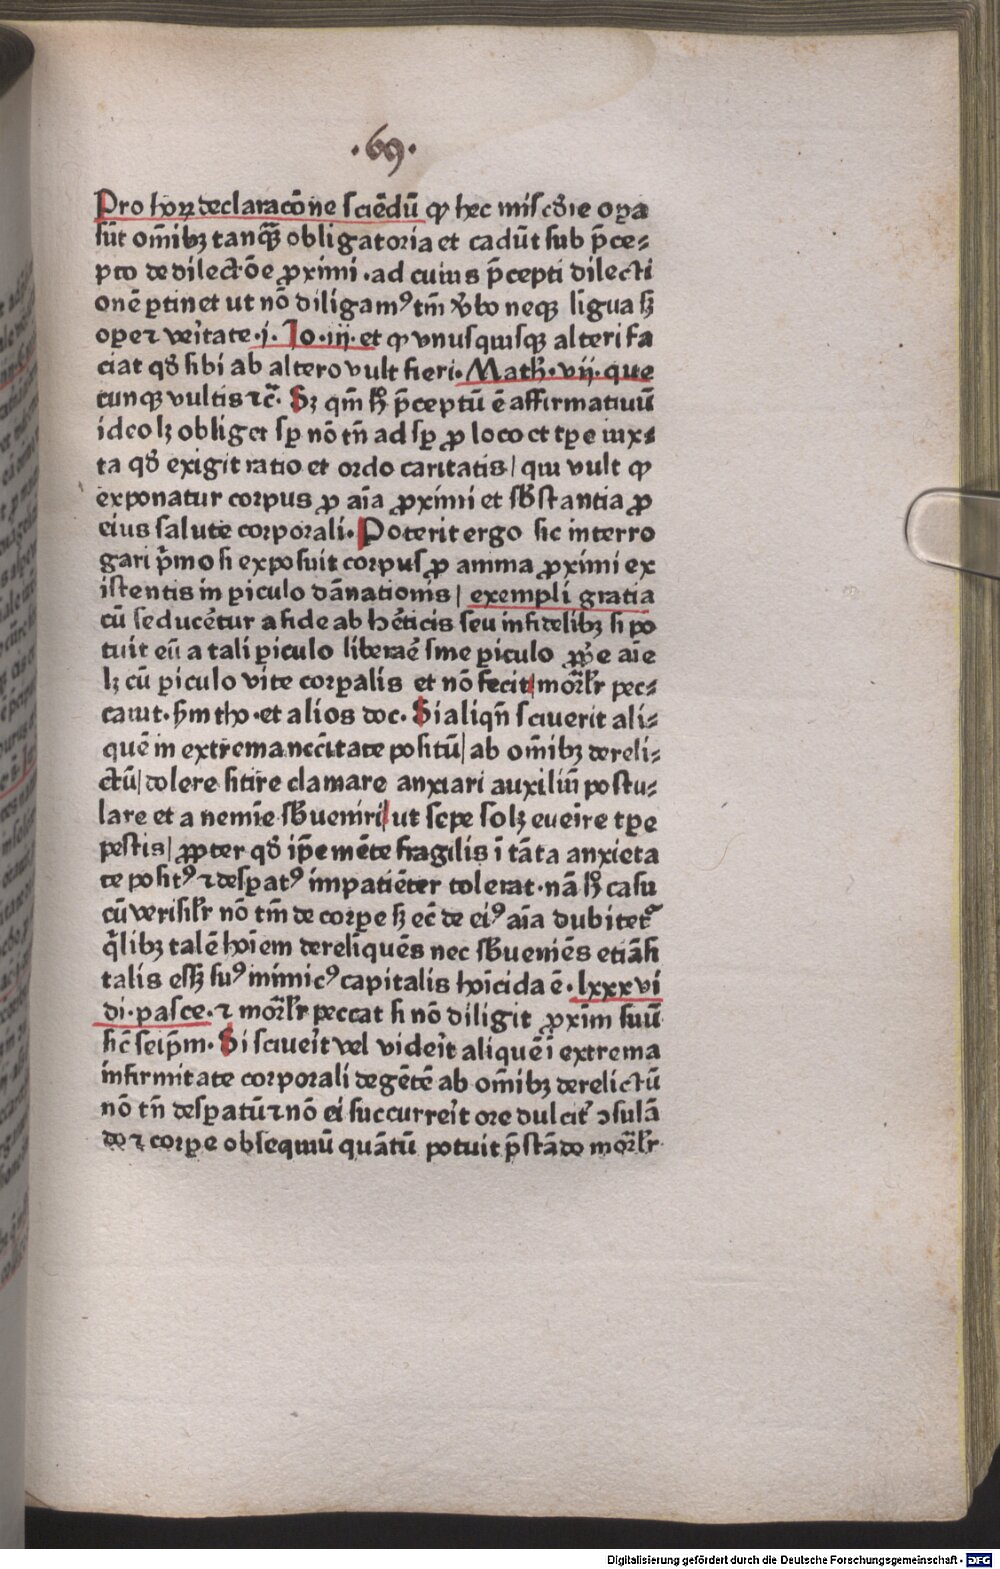 ·69·
Pro hoꝝ declaracōne sciēdū ꝙ hec misc̄die oꝑa
sūt om̄ibꝫ tanqꝫ̄ obligatoria et cadūt sub p̄ce⸗
pto de dilectōe ꝓximi ·ad cuius p̄cepti dilecti
onē ꝑtinet ut nō diligamꝰ tm̄ v̄bo neqꝫ ligua sꝫ
oꝑe ⁊ veritate·i· Jo·iij·et ꝙ vnusquisqꝫ alteri fa
ciat qđ sibi ab altero vult fieri· Math̄·vij· que
cunqꝫ vultis ⁊c̄· Sꝫ qm̄ h̄ p̄ceptū ē affirmatiuū
ideo lꝫ obliget sꝑ nō tn̄ ad sꝑ ꝓ loco et tꝑe iux⸗
ta qđ exigit ratio et ordo caritatis/ qui vult ꝙ
exponatur corpus ꝓ aīa ꝓximi et sb̄stantia ꝓ
eius salute corporali· Poterit ergo sic interro
gari p̄mo si exposuit corpus ꝓ amma ꝓximi ex
istentis in ꝑiculo dānationis/ exempli gratia
cū seducētur a fide ab hēticis seu infidelibꝫ si po
tuit eū a tali ꝑiculo liberaē sine ꝑiculo ꝓp̄e aīe
lꝫ cū ꝑiculo vite corꝑalis et nō fecit/ mor̄lr̄ pec⸗
cauit· h̄m tho·et alios doc· Si aliqn̄ sciuerit ali⸗
quē in extrema nccītate positū/ ab om̄ibꝫ dereli⸗
ctū/ dolere sitire clamare anxiari auxiliū postu⸗
lare et a nemīe sb̄ueniri/ ut sepe solꝫ eueire tꝑe
pestis/ ꝓpter qđ ip̄e mēte fragilis ī tāta anxieta
te positꝰ ⁊ desꝑatꝰ impatiēter tolerat· nā h̄ casu
cū verisilr̄ nō tm̄ de corꝑe sꝫ ec̄ de eiꝰ aīa dubitet᷑
q̄libꝫ talē hoīem derelīquēs nec sb̄ueniēs etiā si
talis essꝫ suꝰ inimicꝰ capitalis hoīcida ē· lxxxvi
di· pasce· ⁊ mor̄lr̄ peccat si nō diligit ꝓxīm suū
sic̄ seip̄m· Si sciueīt vel videīt aliquē ī extrema
infirmitate corporali degētē ab om̄ibꝫ derelictū
nō tn̄ desꝑatū ⁊ nō ei succurreīt ore dulcit᷑ ↄsulā
do ⁊ corꝑe obsequiū quātū potuit p̄stādo mor̄lr̄
Digitalisierung gefördert durch die Deutsche Forschungsgemeinschaft - DFG